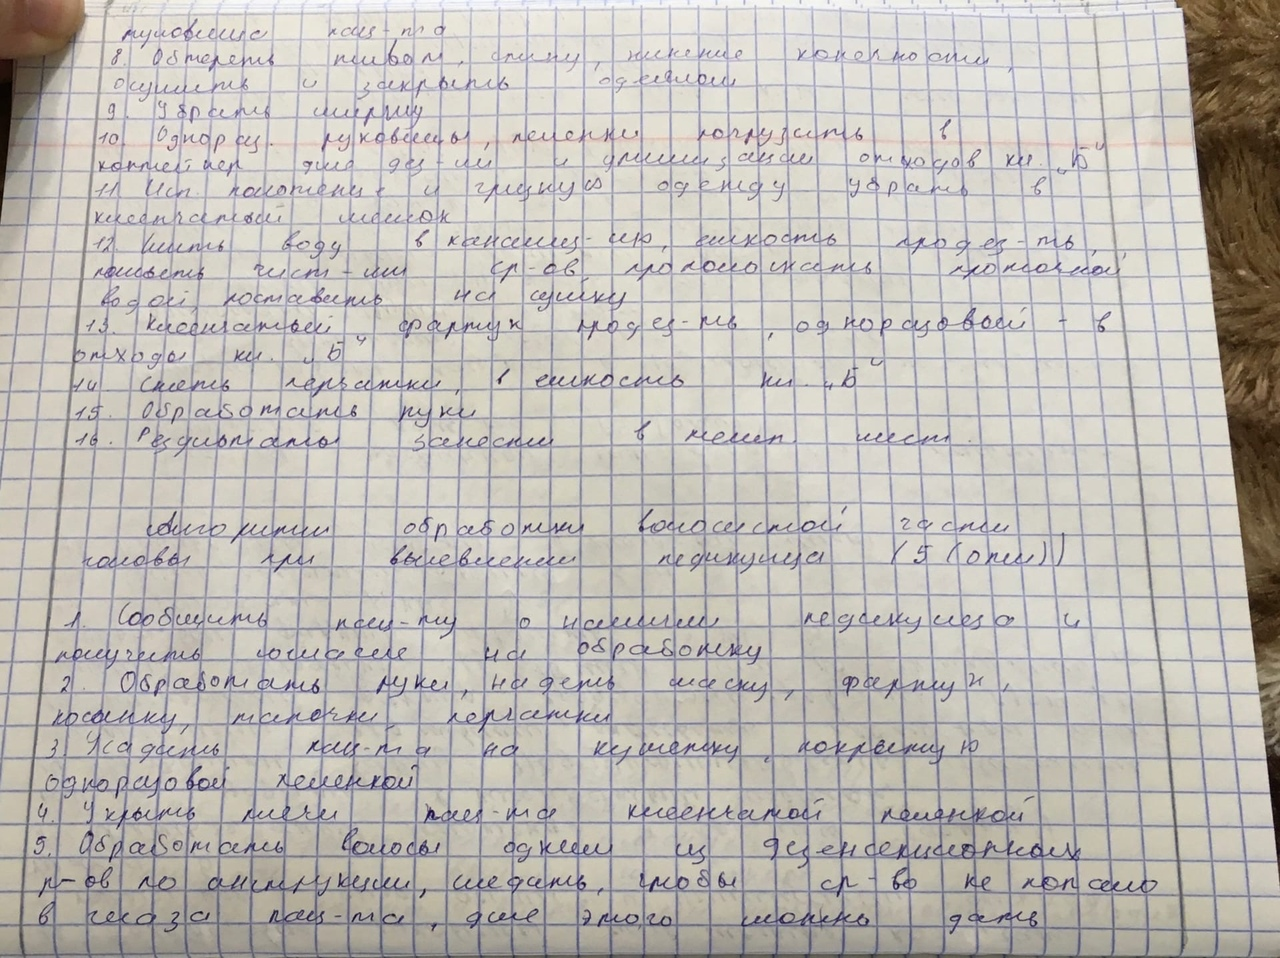 туловища пац-та
8. Обтереть живот, спину, нижние конечности,
осушить и закрыть одеялом
9. Убрать ширму
10. Однораз. рукавицы, пеленки погрузить в
контейнер для дез-ии и утилизации отходов кл. "Б"
11. Исп. полотенце и грязную одежду убрать в
клеенчатый мешок
12. Слить воду в канализ-ию, емкость продез-ть,
помыть чист-ми ср-ов, прополоскать проточной
водой, поставить на сушку
13. Клеенчатый фартук продез-ть, одноразовый - в
отходы кл. "Б"
14. Снять перчатки, в емкость кл. "Б"
15. Обработать руки
16. Результаты занести в темп. лист.
Алгоритм обработки волосистой части
головы при выявлении педикулеза (5 (опи))
1. Сообщить пац-ту о наличии педикулеза и
получить согласие на обработку
2. Обработать руки, надеть маску, фартук,
косынку, тапочки, перчатки
3. Усадить пац-та на кушетку, покрытую
одноразовой пеленкой
4. Укрыть плечи пац-та клеенчатой пеленкой
5. Обработать волосы одним из дезинсекционных
р-ов по инструкции, следить, чтобы ср-во не попало
в глаза пац-та, для этого можно дать